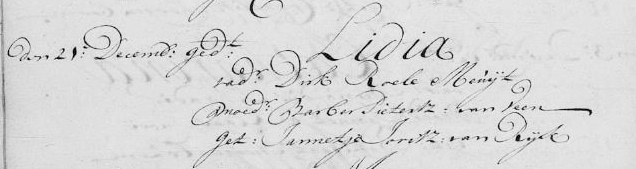 den 21: Decemb: gedt: Lidia
vadr: Dirk Roele Meuijt
moedr: Barber Pieterz: van veen
get: Jannetje Joritz: van Rijck